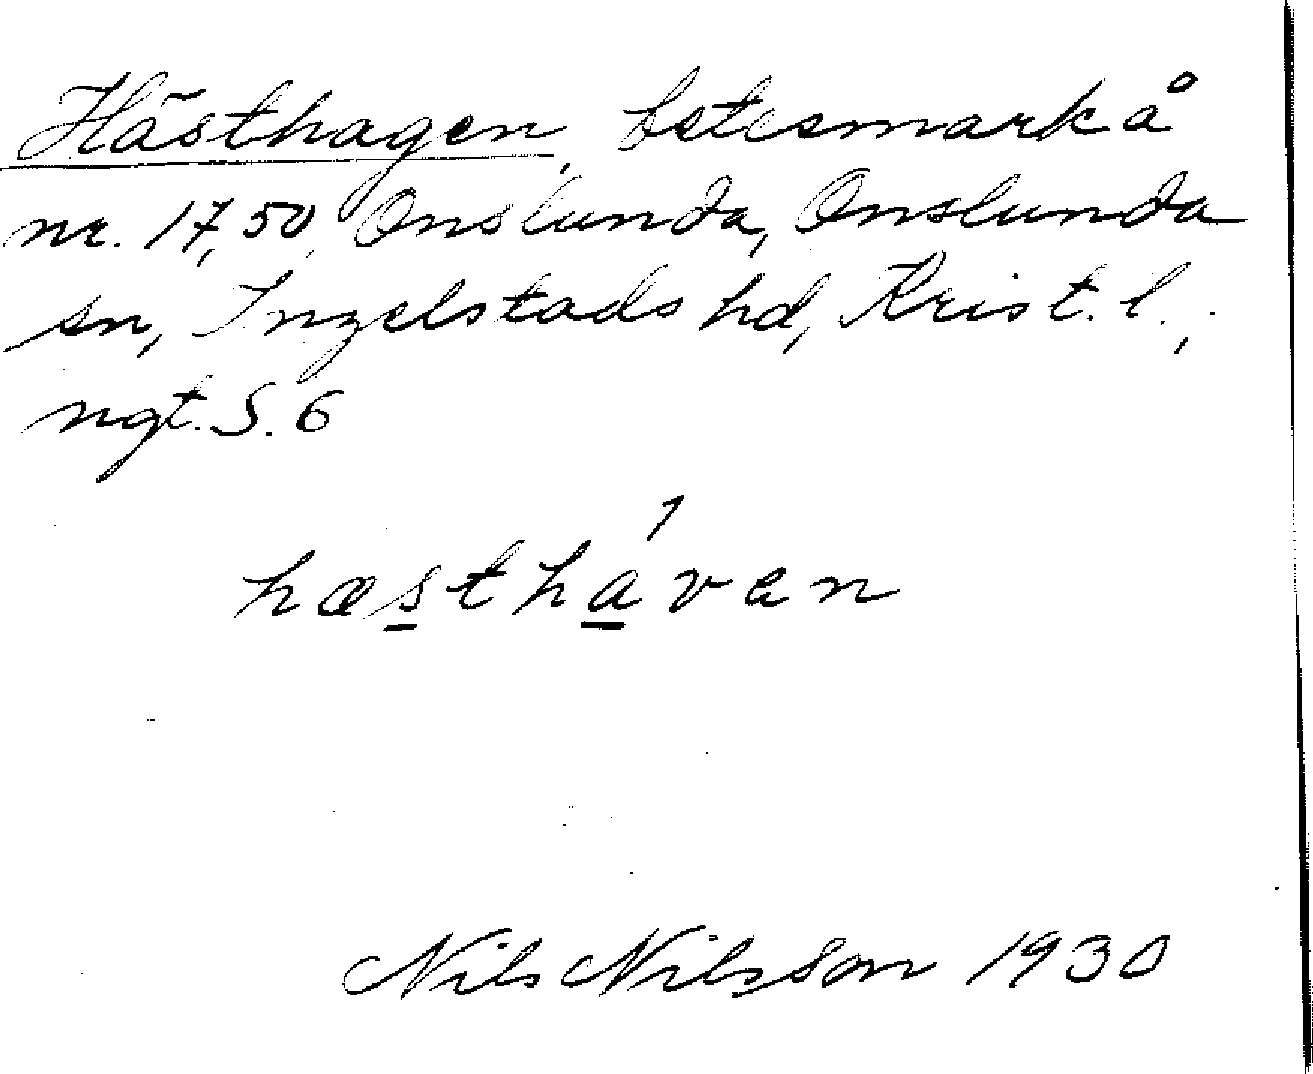 Hästhagen, betesmark å
nr. 17, 50, Onslunda, Onslunda
sn, Ingelstads hd, Krist. l.,
ngt. S. 6
hæsthávan
Nils Nilsson 1930